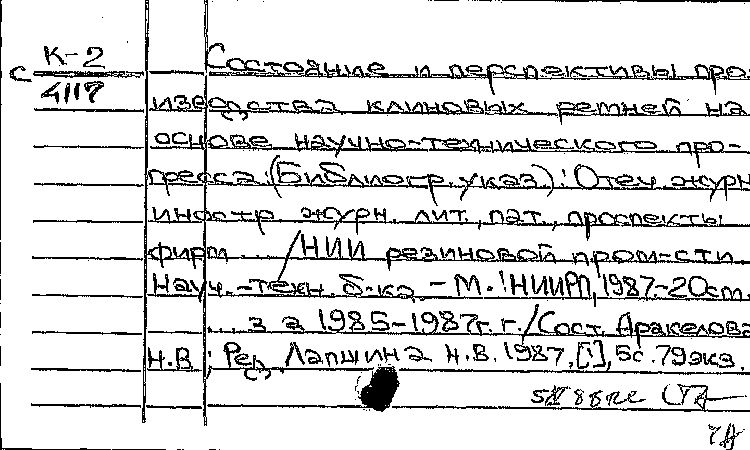 К-2
С 4117
Состояние и перспективы про-
изводства клиновых ремней на
основе научно-технического про-
гресса: (Библиогр. указ): Отеч. журн
иностр. журн. лит., пат., проспекты
фирм ... / НИИ резиновой пром-сти.
Науч.-техн. б-ка. - М.: НИИРП, 1987.-20см.
... за 1985-1987г.г. / Сост. Аракелова
Н.В; Ред. Лапшина Н.В. 1987. [1], 5с. 79экз.